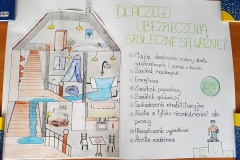 DLACZEGO
UBEZPIECZENIA
SPOŁECZNE SĄ WAŻNE?
Zasiłek macierzyński
Emerytura
Zasiłek pogrzebowy
Zasiłek opiekuńczy
Świadczenie rehabilitacyjne
Renta z tytułu niezdolności do
pracy
Ubezpieczenie wypadkowe
Renta rodzinna